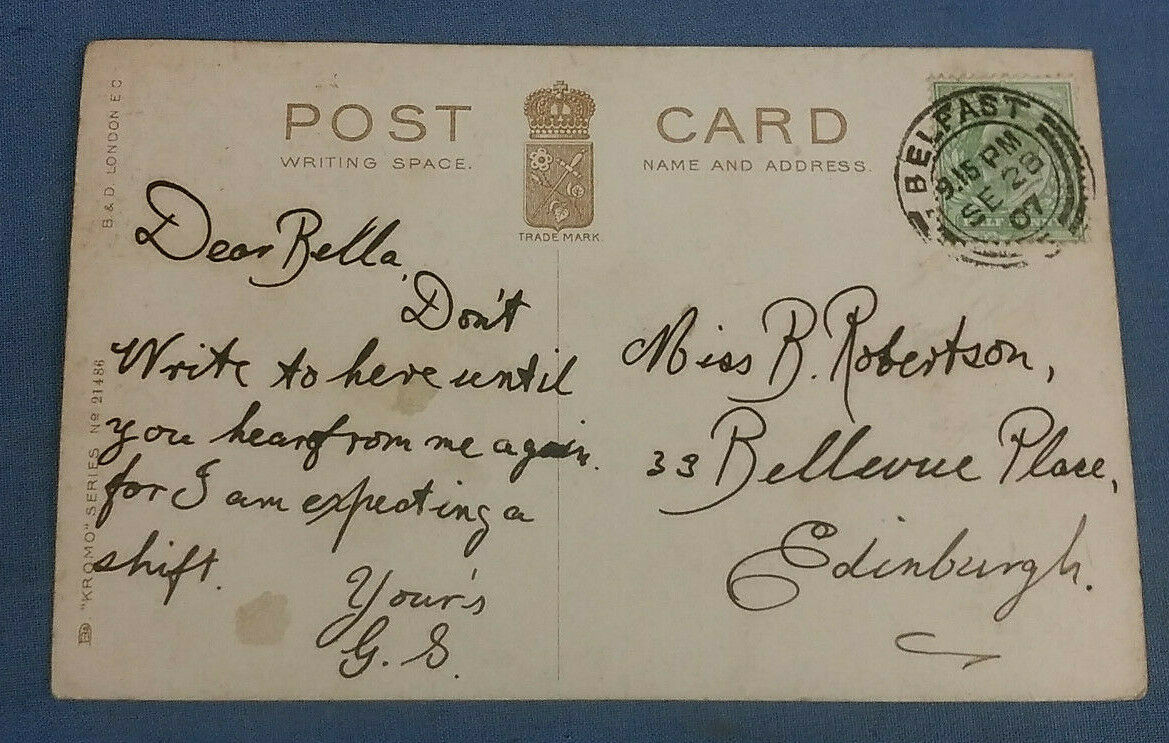 B & D. LONDON E C
"KROMO" SERIES No 21486
POST CARD
WRITING SPACE.
NAME AND ADDRESS.
TRADE MARK.
BELFAST
9.15 PM
SE 28
07
Dear Bella,
Don't
Write to here until
you hear from me again.
for I am expecting a
shift.
Your's
G. S.
Miss B. Robertson,
33 Bellevue Place,
Edinburgh.